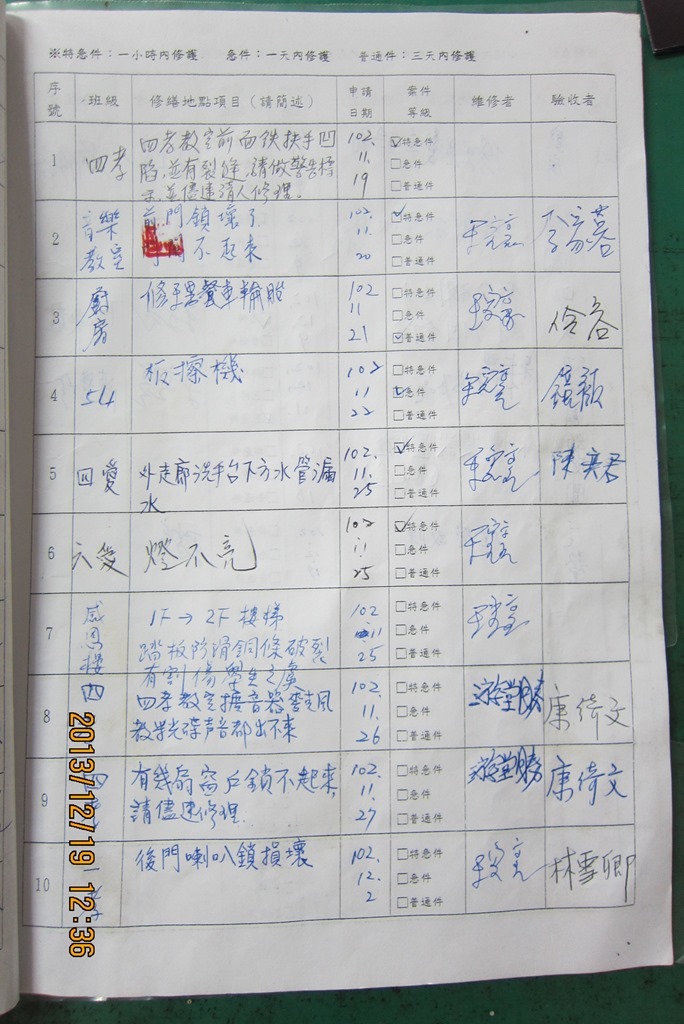 ※特急件：一小時內修護　　急件：一天內修護　　普通件：三天內修護
序號　班級　修繕地點項目（請簡述）　申請日期　案件等級　維修者　驗收者
1　四孝　四孝教室前面鐵扶手凹
陷,並有裂縫,請做警告標
示,並儘速請人修理.　102. 11. 19　☑特急件　☐急件　☐普通件
2　音樂教室　前門鎖壞了
不起來　102. 11. 20　☑特急件　☐急件　☐普通件
3　廚房　修理餐車輪胎　102 11 21　☐特急件　☐急件　☑普通件
4　板擦機　102 11 22　☐特急件　☑急件　☐普通件
5　四愛　外走廊洗手台下方水管漏
水　102. 11. 25　☑特急件　☐急件　☐普通件　陳奕君
6　六愛　燈不亮　102 11 25　☑特急件　☐急件　☐普通件
7　感恩樓　1F→2F樓梯
踏板防滑銅條破裂
有割傷學生之虞　102 11 25　☐特急件　☐急件　☐普通件
8　四　四孝教室擴音器麥克風
教學光碟声音都出不來　102. 11. 26　☐特急件　☐急件　☐普通件　康倚文
9　四孝　有幾扇窗戶鎖不起來,
請儘速修理.　102. 11. 27　☐特急件　☐急件　☐普通件　康倚文
10　後門喇叭鎖損壞　102. 12. 2　☐特急件　☐急件　☐普通件　林雪卿
2013/12/19 12:36